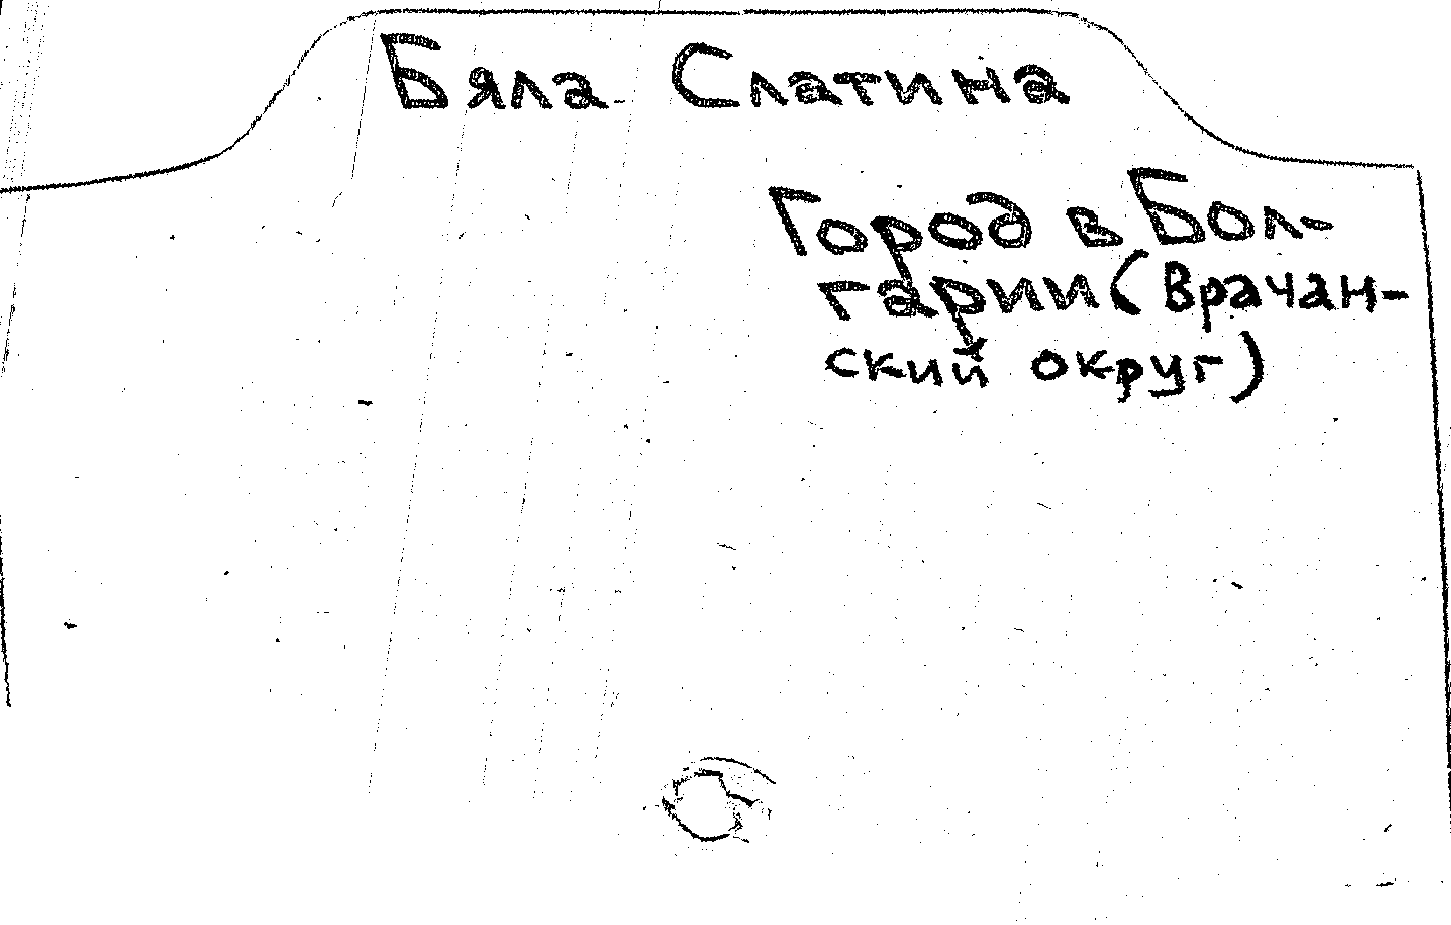 Бяла Слатина
Город в Бол-
гарии (Врачан-
ский округ)